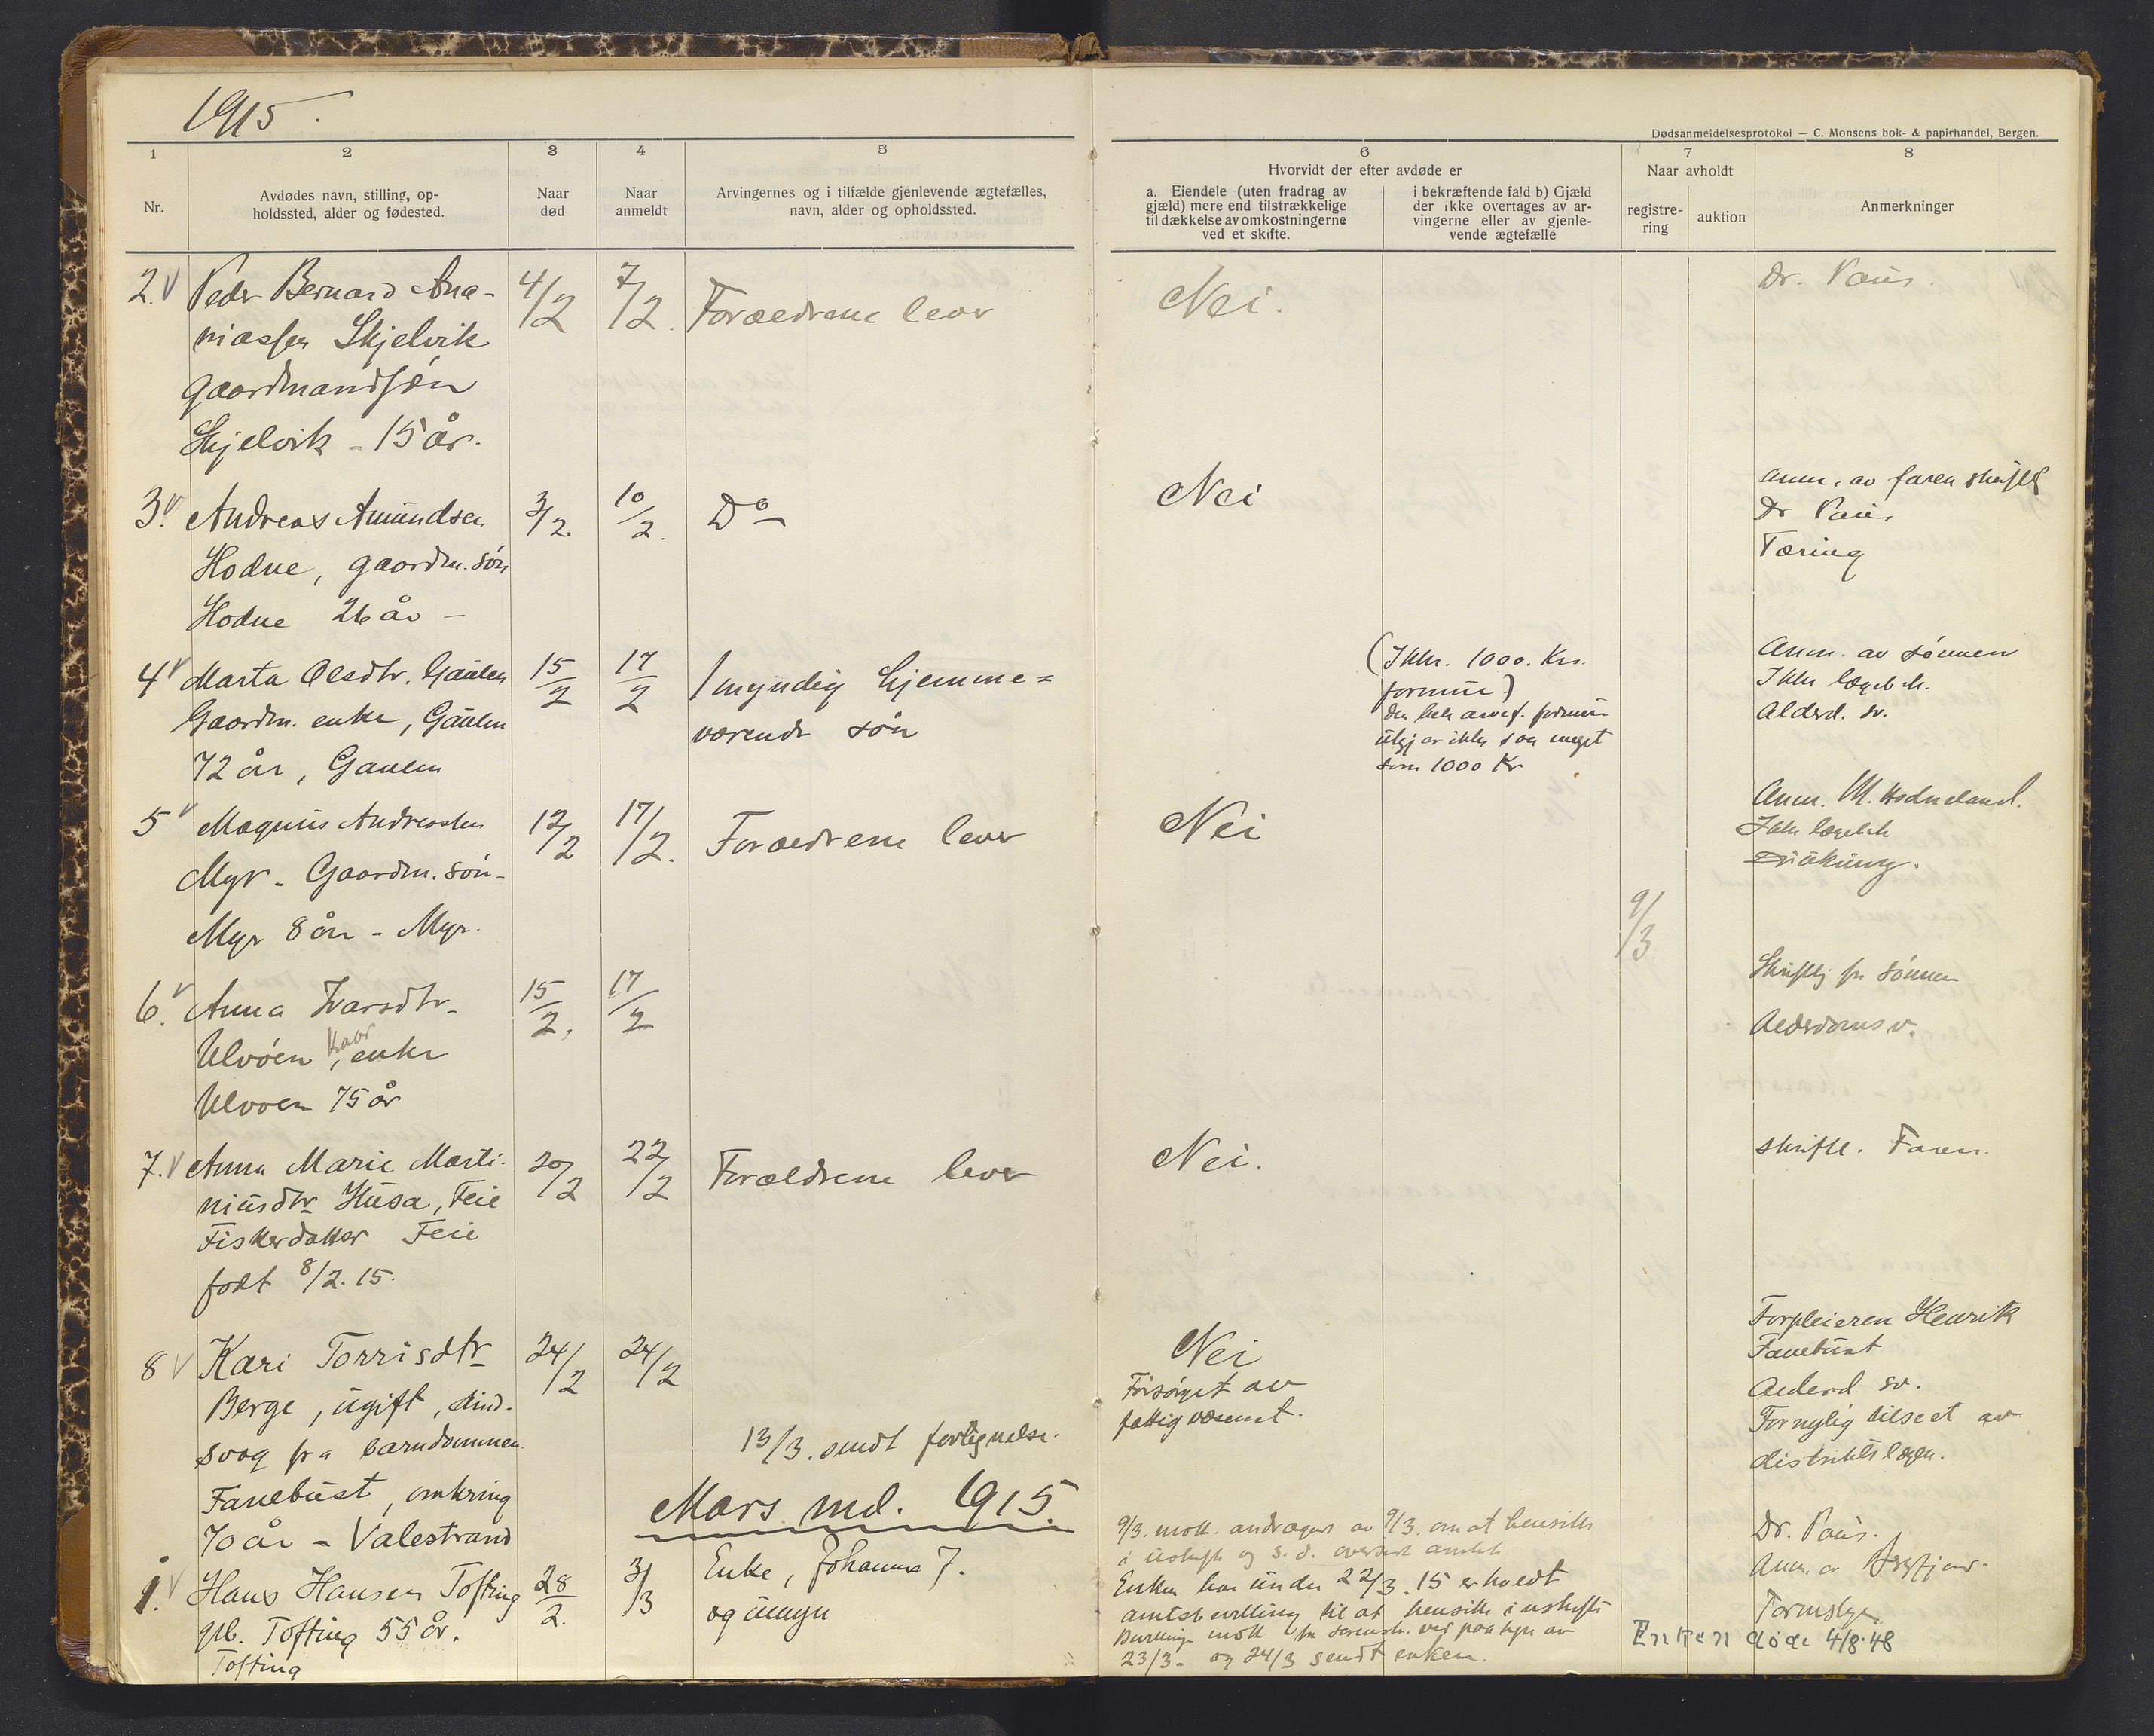 1915.
Dødsanmeldelsesprotokol — C. Monsens bok- & papirhandel, Bergen.
1 2 3 4 5 6 7 8
Nr.
Avdødes navn, stilling, op-
holdssted, alder og fødested.
Naar
død
Naar
anmeldt
Arvingernes og i tilfælde gjenlevende ægtefælles,
navn, alder og opholdssted.
Hvorvidt der efter avdøde er
a. Eiendele (uten fradrag av
gjæld) mere end tilstrækkelige
til dækkelse av omkostningerne
ved et skifte.
i bekræftende fald b) Gjæld
der ikke overtages av ar-
vingerne eller av gjenle-
vende ægtefælle
Naar avholdt
registre-
ring
auktion
Anmerkninger
2. Peder Bernard Ana-
niassen Skjelvik
gaardmandssøn
Skjelvik - 15 år.
4/2
7/2.
Forældrene lever
Nei.
Dr. Paus.
3. Andreas Amundsen
Hodne, gaardm. søn
Hodne 26 år -
3/2
10/2.
Do
Nei
Anm. av faren skriftl
Dr Paus
Tæring
4 Marta Olsdtr. Gaulen
Gaardm. enke, Gaulen
72 år, Gaulen
15/2
17/2
1 myndig hjemme=
værende søn
(Ikke 1000. Krs.
formue)
som 1000 Kr
Anm. av sønnen
Ikke lægeb.
Alderd. sv.
5 Magnus Andreassen
Myr - Gaardm. søn -
Myr 8 år - Myr.
12/2
17/2.
Forældrene lever
Nei
Anm. M. Hodneland.
Ikke lægebeh
9/3
6. Anna Ivarsdtr -
Ulvøen, Kaar enke
Ulvøen 75 år
15/2.
17/2
Skriftlig fra sønnen
Alderdoms v.
7. Anna Marie Marti-
niusdtr Husa, Feie
Fiskerdatter Feie
født 8/2. 15.
20/2
22/2
Forældrene lever
Nei.
skriftl. Faren.
8 Kari Torrisdtr
Berge, ugift, sind-
svag fra barndommen
Fanebust, omkring
70 år - Valestrand
24/2
24/2
Nei
Forsørget av
fattigvæsenet.
Forpleieren Henrik
Fanebust
Alderd. sv.
Fornylig tilseet av
distriktslægen.
13/3. sendt fortegnelse.
Mars md. 1915.
1. Hans Hansen Tofting
gbr. Tofting 55 år.
Tofting
28/2.
3/3
Enke, Johanna J.
og umyn
9/3. mott. andragende av 9/3. om at hensitte
i uskifte og s. d. oversendt amtet
Enken har under 22/3. 15 erholdt
amtsbevilling til at hensitte i uskifte
23/3 - og 24/3 sendt enken.
Dr. Paus.
Enken døde 4/8.48